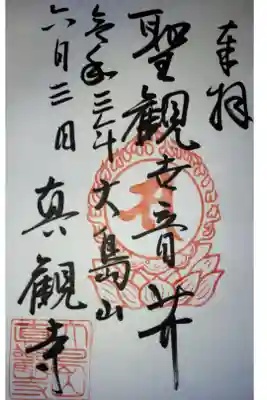 奉拝
聖観世音𦬇
令和三年 大島山
六月三日 真観寺